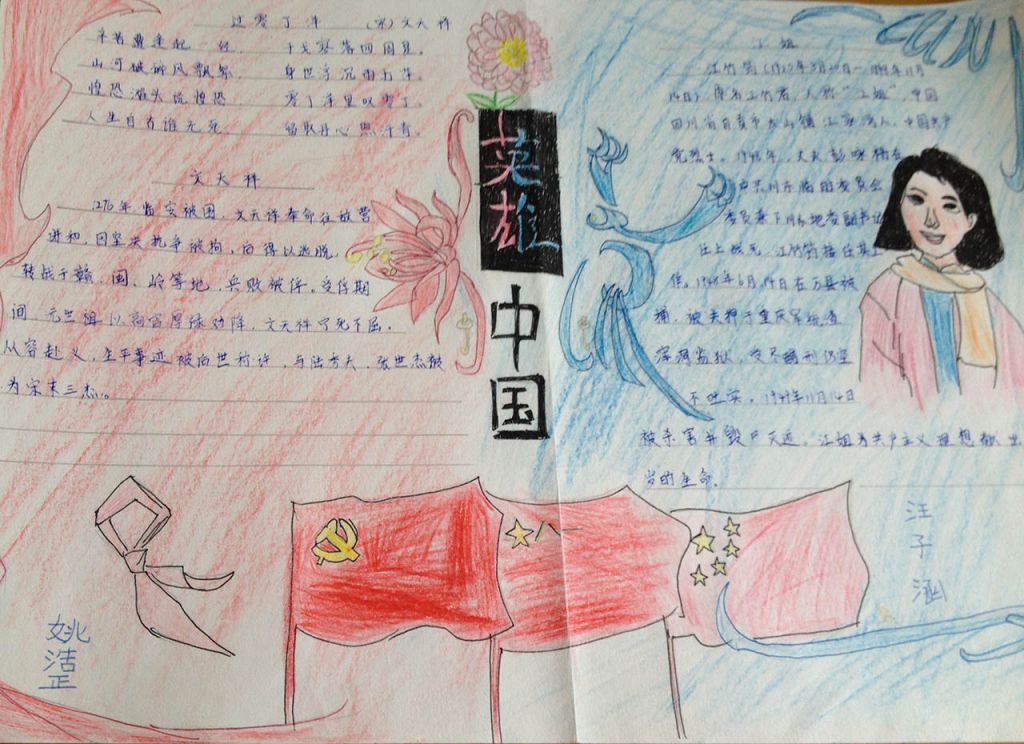 过零丁洋 (宋)文天祥
辛苦遭逢起一经 干戈寥落四周星。
山河破碎风飘絮 身世浮沉雨打萍。
惶恐滩头说惶恐 零丁洋里叹零丁。
人生自古谁无死 留取丹心照汗青。
文天祥
1276年,临安被困,文天祥奉命往敌营
讲和,因坚决抗争被拘,后得以逃脱,
转战于赣、闽、岭等地,兵败被俘。受俘期
间,元世祖以高官厚禄劝降,文天祥宁死不屈,
从容赴义,生平事迹被后世称许,与陆秀夫、张世杰被
为宋末三杰。
英雄
中国
江姐
江竹筠(1920年8月20日—1949年11月
14日),原名江竹君,人称"江姐",中国
四川省自贡市大山铺江家湾人,中国共产
党烈士。1948年,丈夫彭咏梧在
中共川东临时委员会
委员兼下川东地委副书记
任上战死,江竹筠接任其工
作。1948年6月14日在万县被
捕,被关押于重庆军统渣
滓洞监狱,受尽酷刑仍坚
不吐实。1949年11月14日
被杀害并毁尸灭迹。江姐为共产主义理想献出
岁的生命。
汪子涵
姚浩正